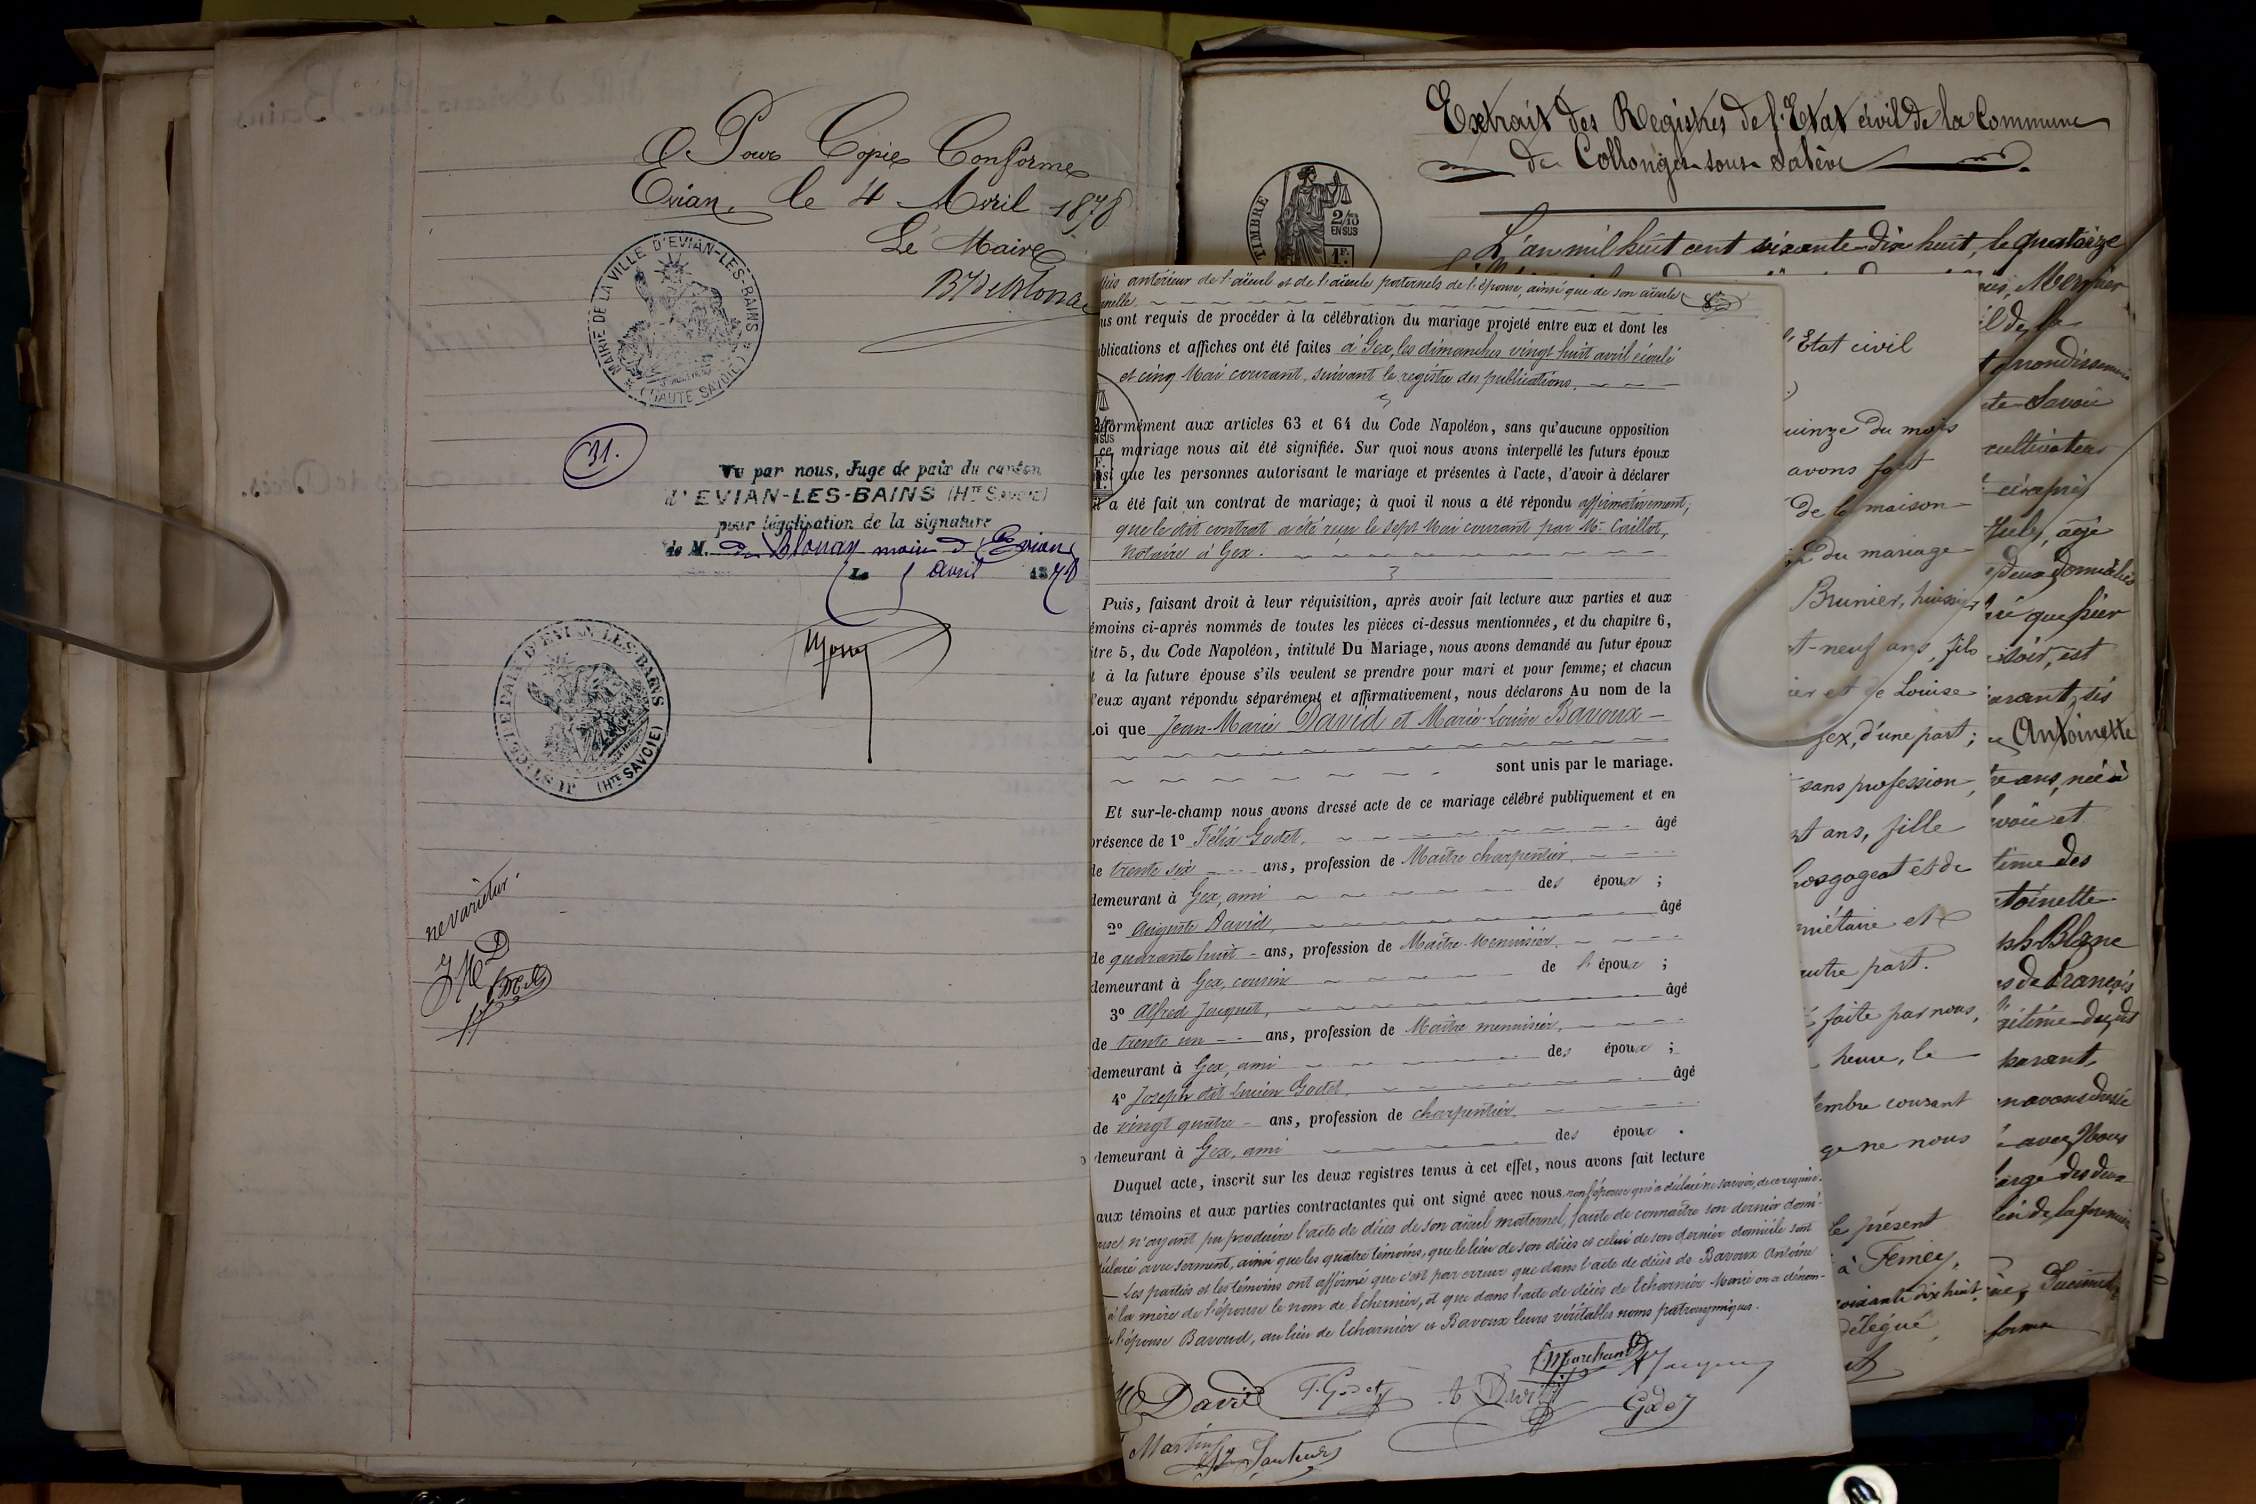 Pour Copie Conforme
Evian, le 4 Avril 1878
Le Maire
MAIRIE DE LA VILLE D'EVIAN-LES-BAINS
(HAUTE SAVOIE)
31.
Vu par nous, Juge de paix du canton
d'EVIAN-LES-BAINS (Hte SAVOIE)
pour légalisation de la signature
de M. de Blonay maire d'Evian
Le 5 avril 1878
JUSTICE DE PAIX D'EVIAN-LES-BAINS
(Hte SAVOIE)
ne varietur.
Extrait des Registres de l'Etat civil de la Commune
de Collonges-sous-Salève
TIMBRE
2/10
EN SUS
1F.
L'an mil huit cent soixante-dix huit, le quatorze
antérieur de l'aïeul et de l'aïeule paternels de l'épouse, ainsi que de son aïeule
8
us ont requis de procéder à la célébration du mariage projeté entre eux et dont les
ublications et affiches ont été faites à Gex, les dimanches vingt huit avril écoulé
et cinq Mai courant, suivant le registre des publications.
formément aux articles 63 et 64 du Code Napoléon, sans qu'aucune opposition
ce mariage nous ait été signifiée. Sur quoi nous avons interpellé les futurs époux
nsi que les personnes autorisant le mariage et présentes à l'acte, d'avoir à déclarer
il a été fait un contrat de mariage; à quoi il nous a été répondu affirmativement,
que le dit contrat a été reçu le sept Mai courant par Me Caillot,
notaire à Gex.
Puis, faisant droit à leur réquisition, après avoir fait lecture aux parties et aux
émoins ci-après nommés de toutes les pièces ci-dessus mentionnées, et du chapitre 6,
itre 5, du Code Napoléon, intitulé Du Mariage, nous avons demandé au futur époux
t à la future épouse s'ils veulent se prendre pour mari et pour femme; et chacun
'eux ayant répondu séparément et affirmativement, nous déclarons Au nom de la
Loi que Jean-Marie David et Marie-Louise Bavoux
sont unis par le mariage.
Et sur-le-champ nous avons dressé acte de ce mariage célébré publiquement et en
présence de 1º Félix Godet, âgé
de trente six ans, profession de Maître charpentier,
demeurant à Gex, ami des époux ;
2º Auguste David, âgé
de quarante huit ans, profession de Maître Menuisier,
demeurant à Gex, cousin de l'époux ;
3º Alfred Jacquet, âgé
de trente un ans, profession de Maître menuisier,
demeurant à Gex, ami des époux ;
4º Joseph dit Lucien Godet, âgé
de vingt quatre ans, profession de charpentier
demeurant à Gex, ami des époux .
Duquel acte, inscrit sur les deux registres tenus à cet effet, nous avons fait lecture
aux témoins et aux parties contractantes qui ont signé avec nous, non l'épouse qui a déclaré ne savoir, de ce requise.
n'ayant pu produire l'acte de décès de son aïeul maternel, faute de connaître son dernier domi-
claré avec serment, ainsi que les quatre témoins, que le lieu de son décès et celui de son dernier domicile sont
Les parties et les témoins ont affirmé que c'est par erreur que dans l'acte de décès de Bavoux Antoine
à la mère de l'épouse le nom de Echernier, et que dans l'acte de décès de Echarnier Marie on a dénom-
l'épouse Bavoud, au lieu de Echarnier et Bavoux leurs véritables noms patronymiques.
Marchand
David F. Godet Godet
Martin
l'Etat civil
uinze du mois
avons fait
de la maison
du mariage
Brunier, huissier
t-neuf ans, fils
ier et de Louise
Gex, d'une part;
sans profession,
ans, fille
et de
riétaire et
autre part.
faite par nous,
heure, le
tembre courant
ge ne nous
le présent
à Ferney,
soixante dix huit
délégué
Mercier
il de la
arrondissement
te Savoie
cultivateur
ci après
âgé
deux domiciliés
que hier
soir, est
Antoinette
ans, née à
voie et
time des
toinette
Blanc
de François
gitime des
parant,
avons dressé
avec Nous
marge des deux